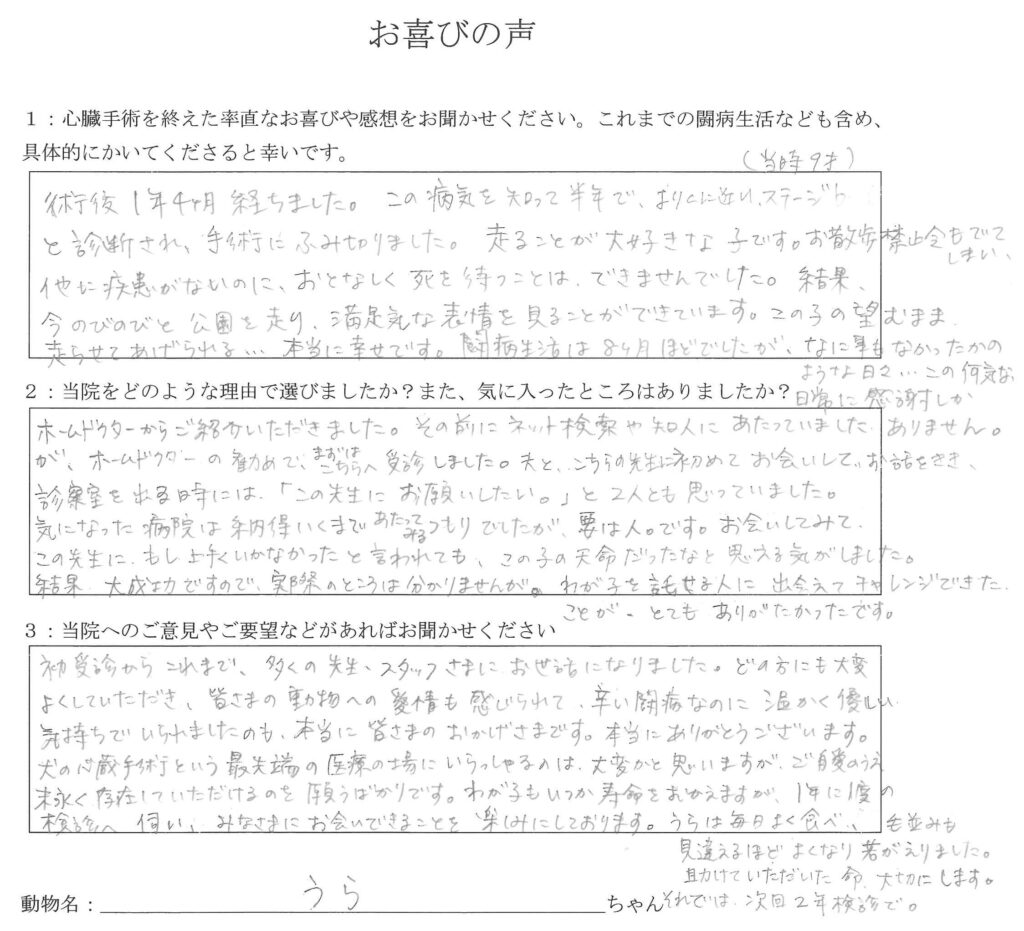 お喜びの声
1：心臓手術を終えた率直なお喜びや感想をお聞かせください。これまでの闘病生活なども含め、
具体的にかいてくださると幸いです。
(当時9才)
術後1年4ヶ月経ちました。この病気を知って半年で、
と診断され、手術にふみ切りました。走ることが大好きな子です。お散歩禁止令もでて
しまい、
他に疾患がないのに、おとなしく死を待つことは、できませんでした。結果、
今のびのびと公園を走り、満足気な表情を見ることができています。この子の望むまま、
走らせてあげられる… 本当に幸せです。闘病生活は8ヶ月ほどでしたが、なに事もなかったかの
ような日々…この何気ない
日常に感謝しか
ありません。
2：当院をどのような理由で選びましたか？また、気に入ったところはありましたか？
ホームドクターからご紹介いただきました。その前にネット検索や知人にあたっていました
が、ホームドクターの勧めで、まずはこちらへ受診しました。夫と、こちらの先生に初めてお会いして、お話をきき、
診察室を出る時には、「この先生にお願いしたい。」と2人とも思っていました。
気になった病院は納得いくまであたってみるつもりでしたが、要は人。です。お会いしてみて、
この先生に、もし上手くいかなかったと言われても、この子の天命だったなと思える気がしました。
結果、大成功ですので、実際のところは分かりませんが。わが子を託せる人に出会えてチャレンジできた
ことが、とてもありがたかったです。
3：当院へのご意見やご要望などがあればお聞かせください
初受診からこれまで、多くの先生、スタッフさまにお世話になりました。どの方にも大変
よくしていただき、皆さまの動物への愛情も感じられて、辛い闘病なのに温かく優しい
気持ちでいられましたのも、本当に皆さまのおかげさまです。本当にありがとうございます。
犬の心臓手術という最先端の医療の場にいらっしゃるのは、大変かと思いますが、ご自愛のうえ
末永く存在していただけるのを願うばかりです。わが子もいつか寿命をむかえますが、1年に1度の
検診へ伺い、みなさまにお会いできることを楽しみにしております。うらは毎日よく食べ、毛並みも
見違えるほどよくなり若がえりました。
助けていただいた命、大切にします。
それでは、次回2年検診で。
動物名：うらちゃん